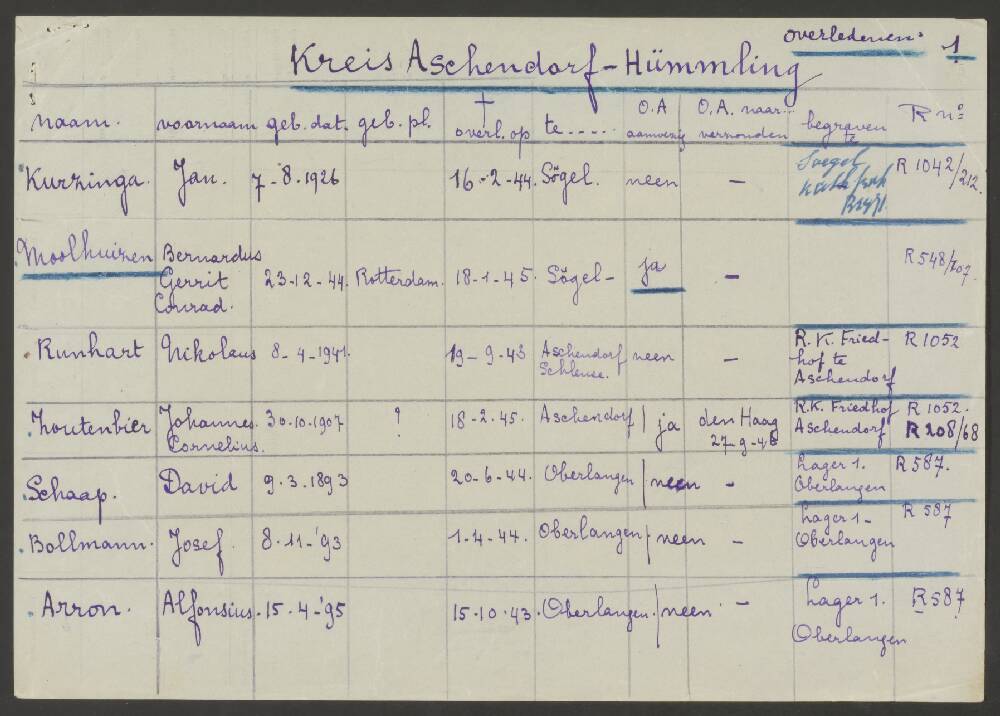 overledenen: 1
Kreis Aschendorf-Hümmling
naam. voornaam geb. dat. geb. pl. † overl. op te..... O.A aanwezig O.A. naar verzonden begraven te R nº
Kurzinga. Jan. 7-8.1926 16-2-44. Sögel. neen — Soegel R 1042/212.
Moolhuizen Bernardus
Gerrit 23-12-44. Rotterdam. 18-1-45. Sögel- ja — R 548/707.
Conrad.
Runhart Nikolaus 8-4-1941. 19-9-43 Aschendorf Schleuse. neen — R.K. Fried- R 1052
hof te
Aschendorf
Zoutenbier Johannes. 30.10.1907 ? 18-2.45. Aschendorf ja den Haag R.K. Friedhof R 1052.
Cornelius. 27-9-46 Aschendorf R 208/68
Schaap. David 9.3.1893 20-6-44. Oberlangen neen - Lager 1. R 587.
Oberlangen
Bollmann. Josef. 8.11-'93 1-4-44. Oberlangen neen — Lager 1- R 587
Oberlangen
Arron. Alfonsius. 15.4-'95 15-10.43. Oberlangen. neen - Lager 1. R 587
Oberlangen